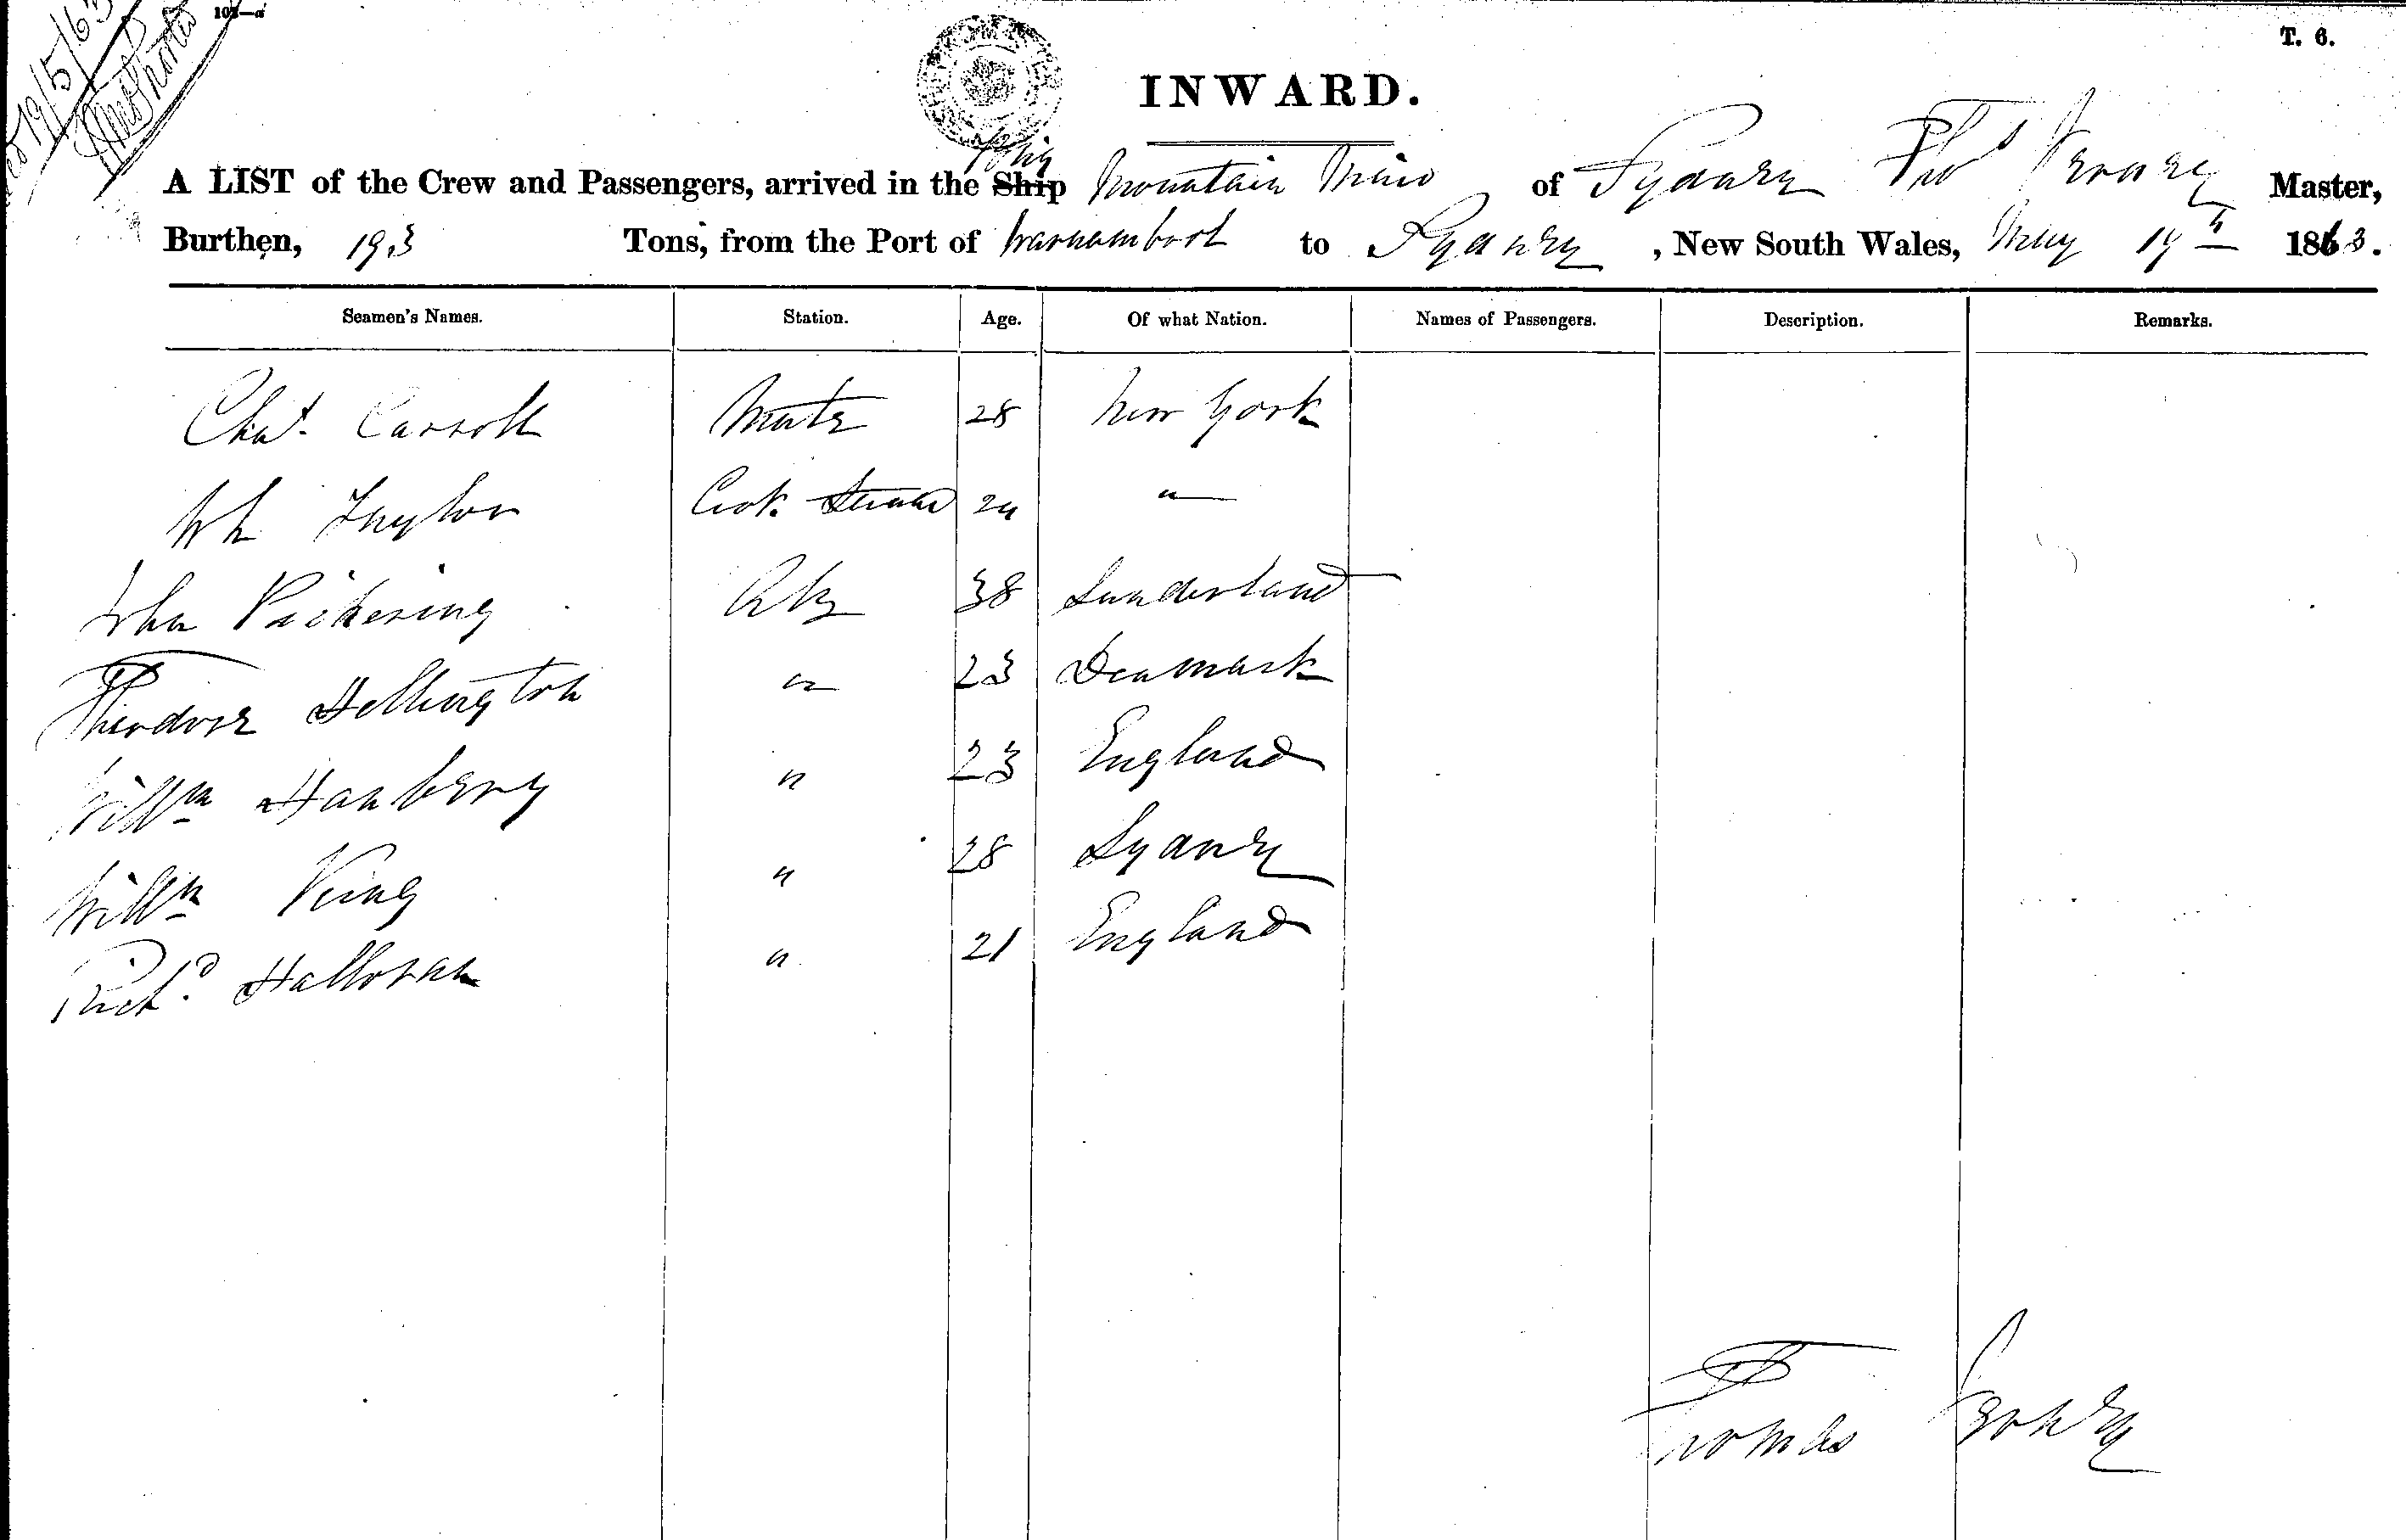 19/5/63
103—a
T. 6.
INWARD.
Brig
A LIST of the Crew and Passengers, arrived in the Ship Mountain Maid of Sydney Thos Master,
Burthen, 193 Tons, from the Port of Warnambool to Sydney, New South Wales, May 19th 1863.
Seamen's Names. Station. Age. Of what Nation. Names of Passengers. Description. Remarks.
Chas. Carroll Mate 28 New York
Wm Taylor Cook 24 "
John Pickering AB 38 Sunderland
Theodore Hellington " 23 Denmark
Willm Hanberry " 23 England
Willm King " 28 Sydney
Richd. Halloran " 21 England
Thomas